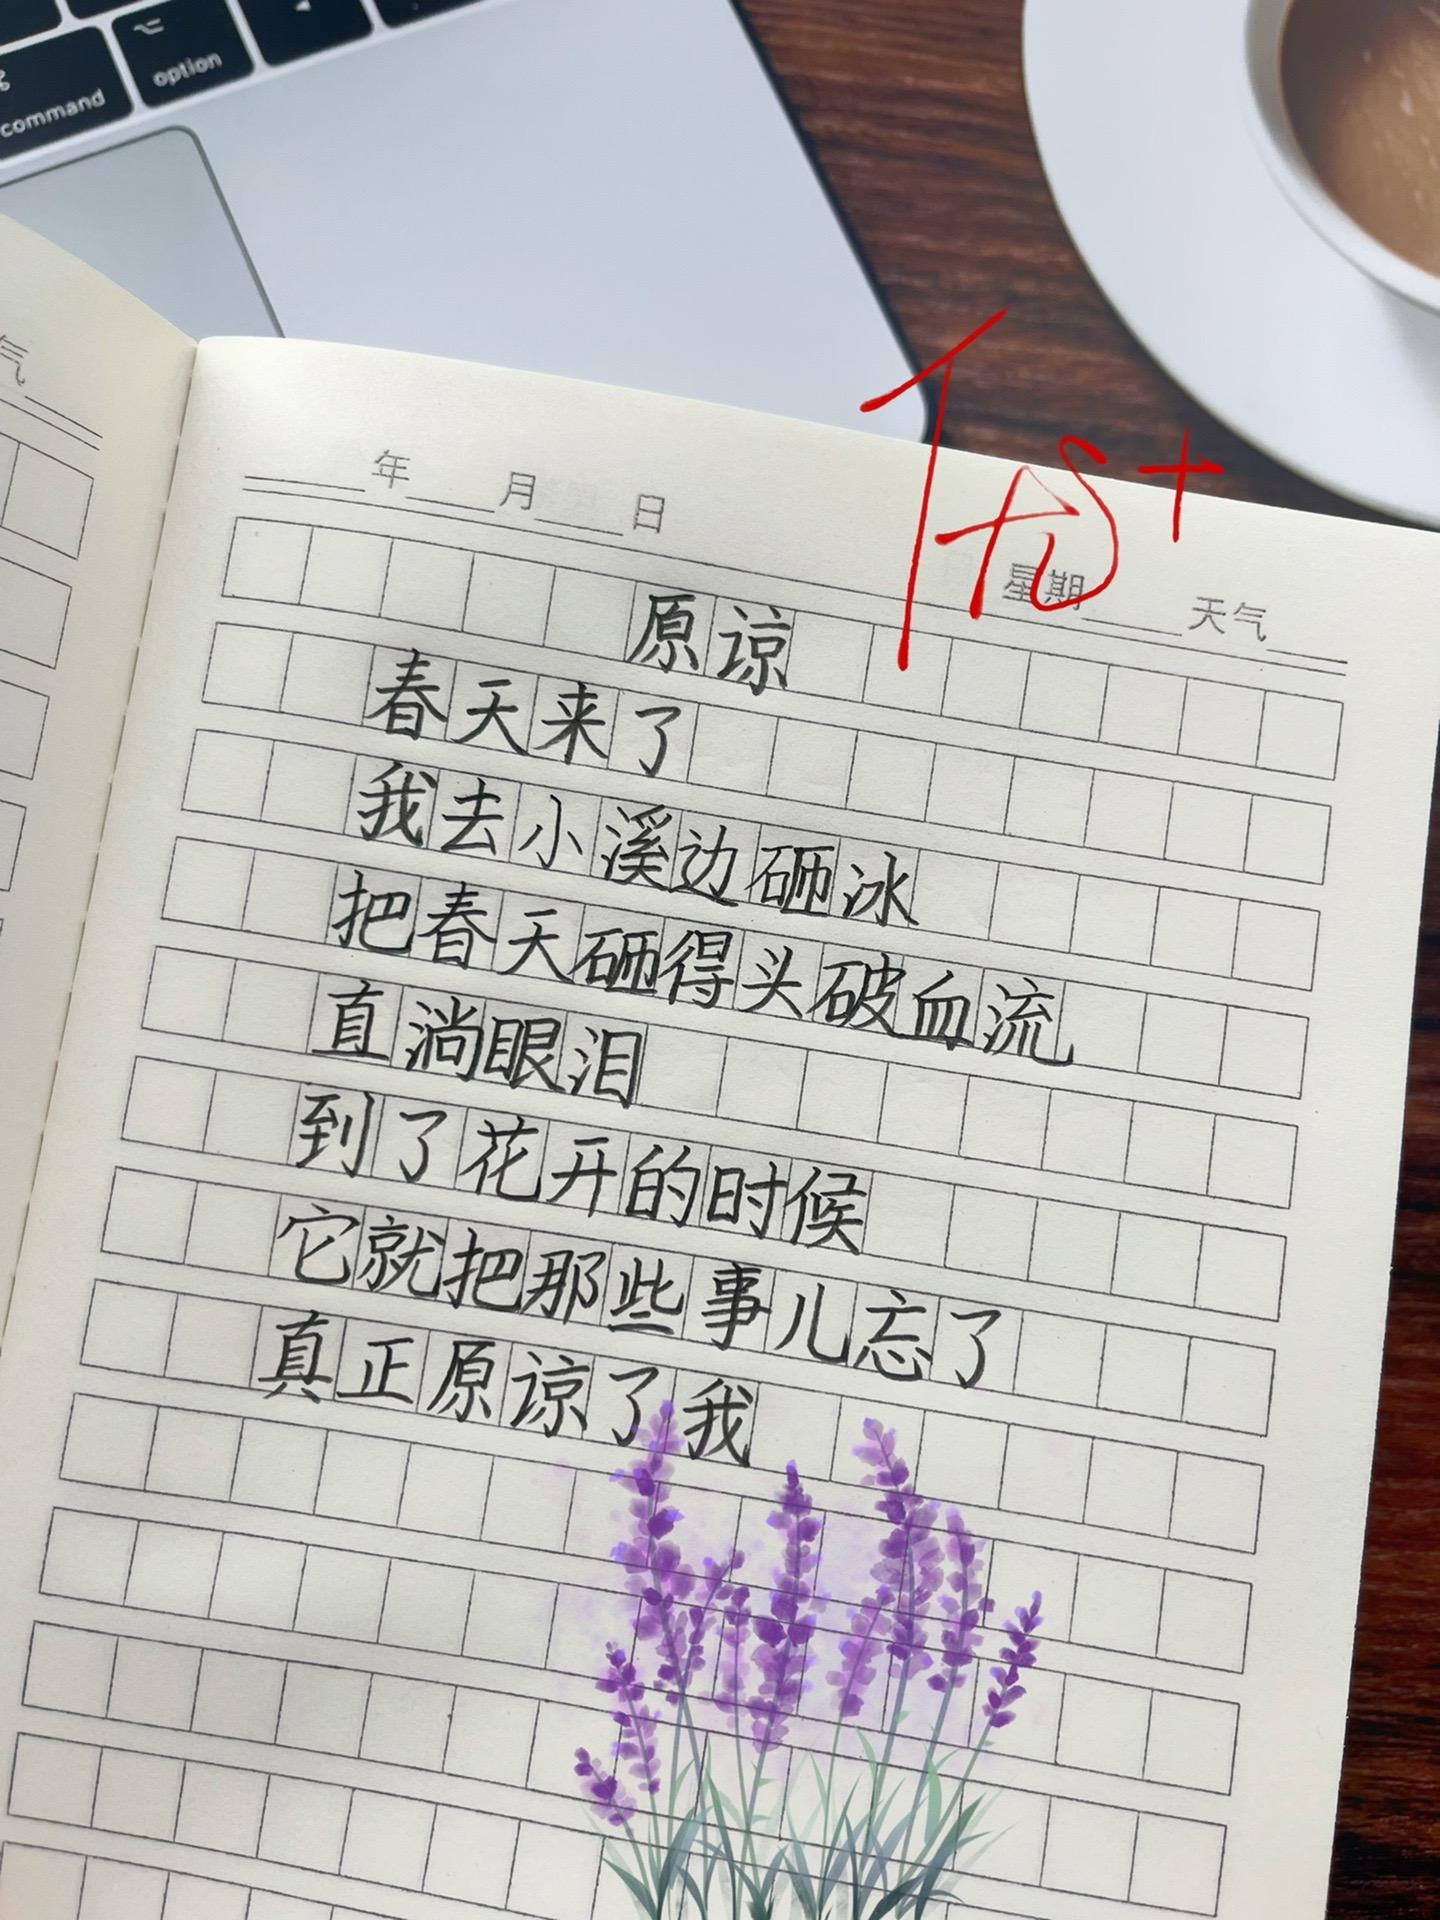 command
option
气
年 月 日
星期 天气
原谅
春天来了
我去小溪边砸冰
把春天砸得头破血流
直淌眼泪
到了花开的时候
它就把那些事儿忘了
真正原谅了我